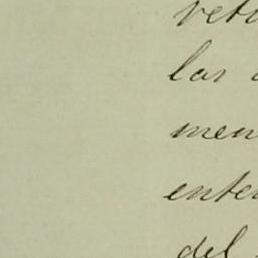 reti
las
men
enter
del